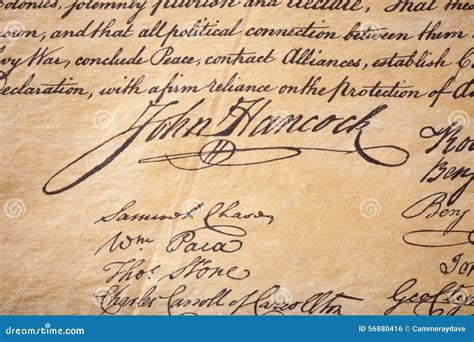 Colonies, solemnly publish and declare, That the
own, and that all political connection between them
evy War, conclude Peace, contract Alliances, establish C
Declaration, with a firm reliance on the protection of
John Hancock
Samuel Chase
Wm Paca
Thos. Stone
Charles Carroll of Carrollton
Ben
Ben
Geo
dreamstime.com
56880416
© Cammeraydave